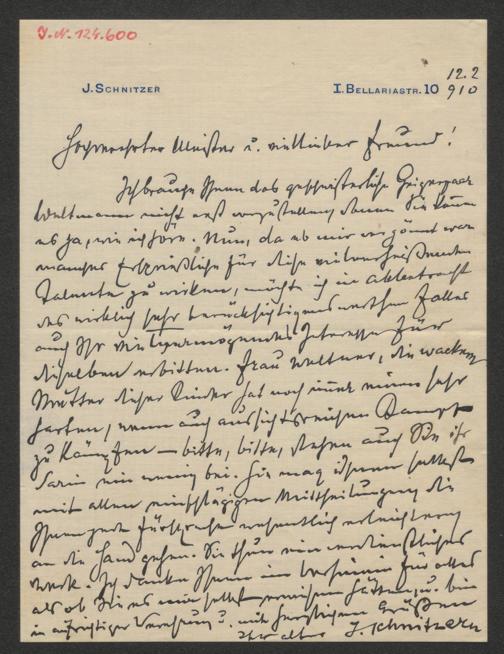 J.N. 124.600
J. SCHNITZER
I. BELLARIASTR. 10
12.2
910
Hochverehrter Meister u. vielliober Freund!
Ich brauche Ihnen das geschwisterliche Geigerpaar
Weltmann nicht erst vorzustellen, denn Sie kennen
es ja, wie ich höre. Nun, da es mir vergönnt war
manches Ersprießliche für diese vielverheißenden
Talente zu wirken, möchte ich in Anbetracht
des wirklich sehr berücksichtigenswerthen Falles
auch Ihr vielvermögendes Interesse für
dieselben erbitten. Frau Weltner, die wackere
Mutter dieser Kinder hat noch immer einen sehr
harten, wenn auch aussichtsreichen Kampf
zu kämpfen — bitte, bitte, stehen auch Sie ihr
darin ein wenig bei. Sie mag Ihnen selbst
mit allen einschlägigen Mittheilungen die
Ihnen jede Fürsprache wesentlich erleichtern
an die Hand gehen. Sie thun ein verdienstliches
Werk. Ich danke Ihnen im Voraus für alles
als ob Sie es mir selbst erwiesen hätten, u. bin
in aufrichtiger Verehrung u. mit herzlichen Grüßen
Ihr alter J. Schnitzer